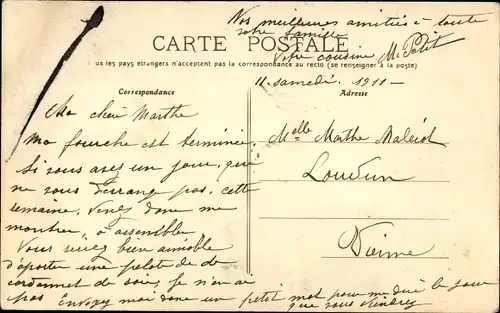 Nos meilleures amitiés à toute
votre famille
Votre cousine M. Petit
CARTE POSTALE
us les pays étrangers n'acceptent pas la correspondance au recto (se renseigner à la poste)
11 samedi 1911 -
Correspondance
Ma chère Marthe
Ma fourche est terminée.
Si vous avez un jour, que
ne vous dérange pas, cette
semaine, venez donc me
montrer, à assembler
Vous seriez bien aimable
d'aporter une pelote de
cordonnet de soie, je n'en ai
pas Envoyez moi donc un petit mot pour me dire le jour
que vous viendrez
Adresse
Melle Marthe
Loudun
Vienne